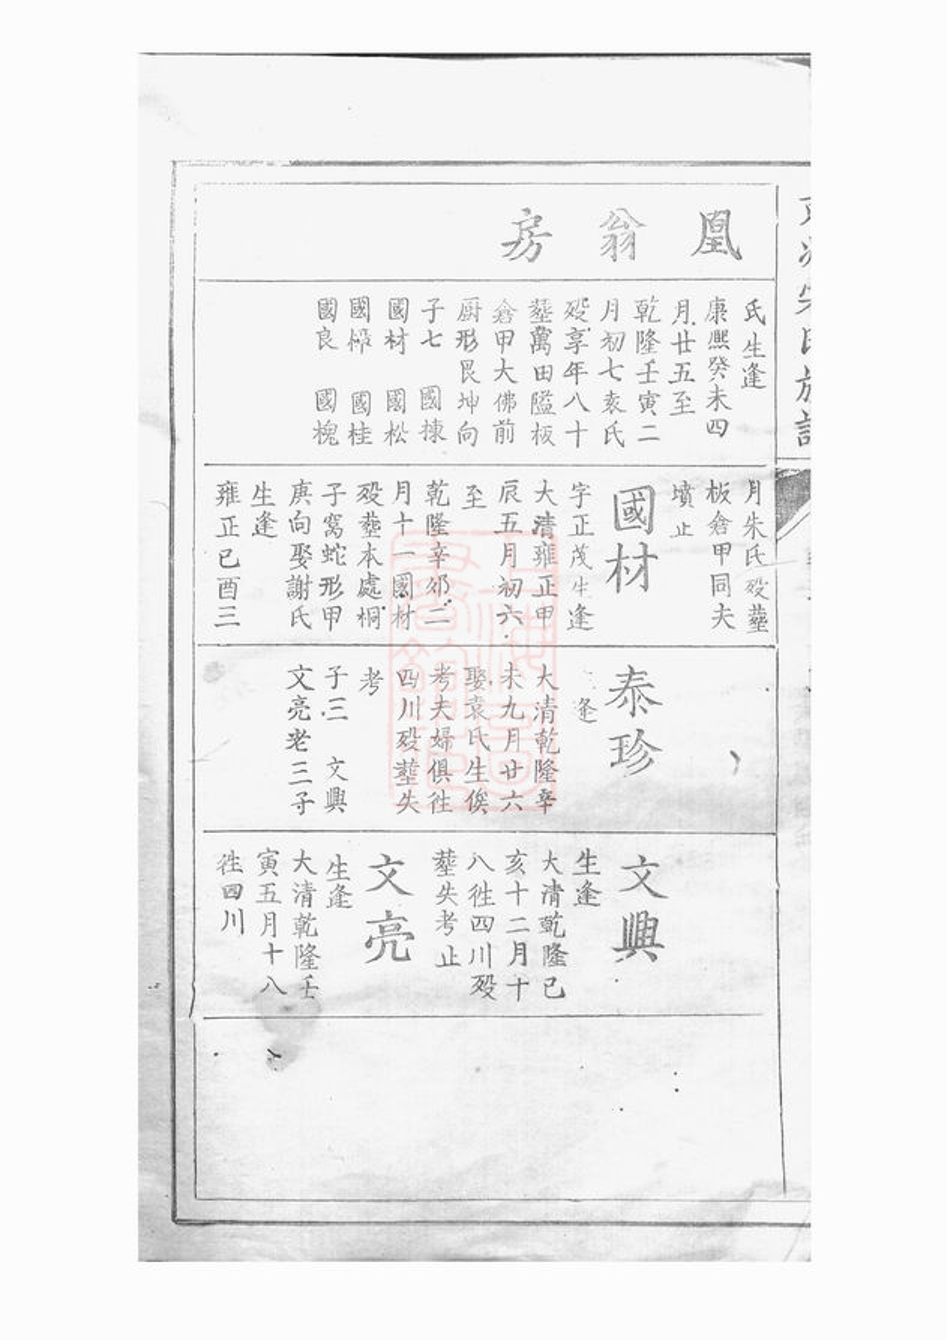 凰翁房
氏生逢
康熙癸未四
月廿五至
乾隆壬寅二
月初七袁氏
殁享年八十
塟萬田隘板
倉甲大佛前
厨形艮坤向
子七 國棟
國材 國松
國 國桂
國良 國槐
月朱氏殁塟
板倉甲同夫
墳止
國材
字正茂生逢
大清雍正甲
辰五月初六
至
乾隆辛卯二
月十一國材
殁塟本處桐
子窩蛇形甲
庚向娶謝氏
生逢
雍正已酉三
泰珍
逢
大清乾隆辛
未九月廿六
娶袁氏生俟
考夫婦俱徃
四川殁塟失
考
子三 文興
文亮老三子
文興
生逢
大清乾隆已
亥十二月十
八徃四川殁
塟失考止
文亮
生逢
大清乾隆壬
寅五月十八
徃四川